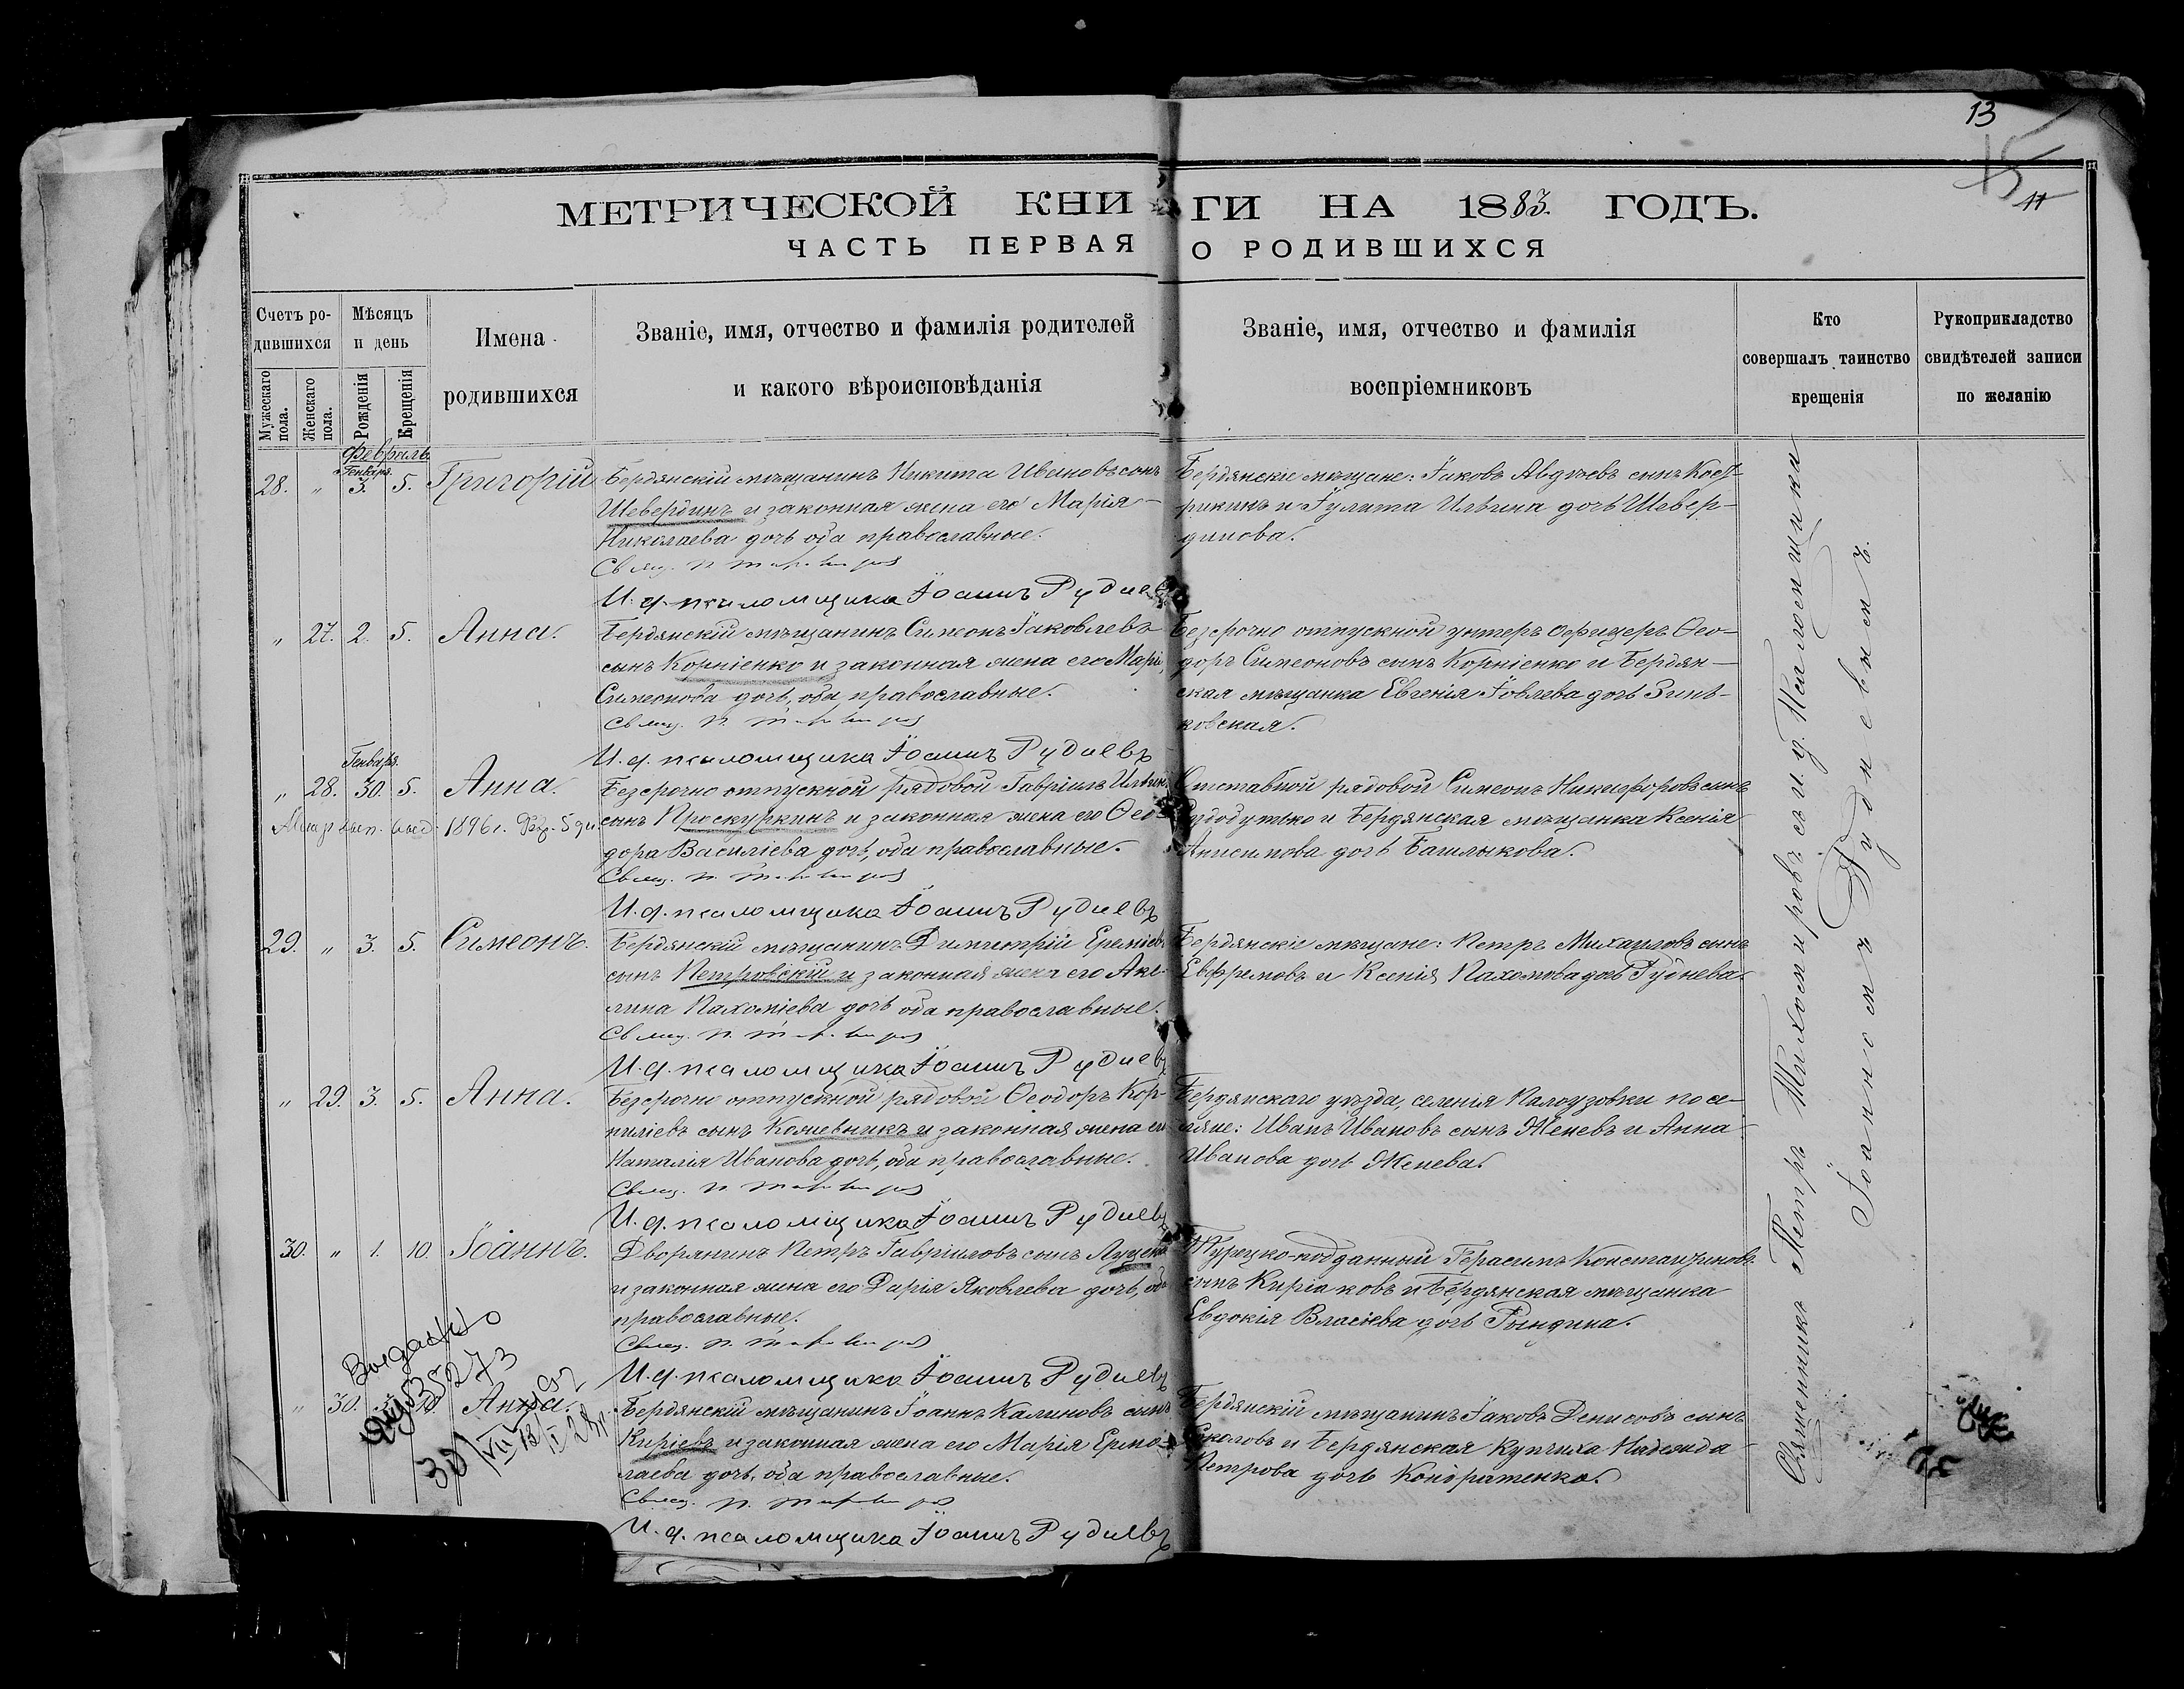 13
15
11
МЕТРИЧЕСКОЙ КНИГИ НА 1883. ГОДЪ.
ЧАСТЬ ПЕРВАЯ О РОДИВШИХСЯ
Счетъ родившихся
Мужескаго пола.
Женскаго пола.
Мѣсяцъ и день
Рожденія
Крещенія
Имена
родившихся
Званіе, имя, отчество и фамилія родителей
и какого вѣроисповѣданія
Званіе, имя, отчество и фамилія
воспріемниковъ
Кто
совершалъ таинство
крещенія
Рукоприкладство
свидѣтелей записи
по желанію
Февраль
Генваря.
28. " 3. 5. Григорій
Бердянскій мѣщанинъ Никита Ивановъ сынъ
Шевердинъ и законная жена его Марія
Николаева дочь оба православные.
Свящ. П. Тихомиров
И. д. псаломщика Іоаннъ Рудневъ
Бердянскіе мѣщане: Іаковъ Авдѣевъ сынъ Кост-
рикинъ и Іулита Ильина дочь Шевер-
динова.
" 27. 2. 5. Анна.
Бердянскій мѣщанинъ Симеонъ Іаковлевъ
сынъ Корніенко и законная жена его Марія
Симеонова дочь, оба православные.
Свящ. П. Тихомиров
И. д. псаломщика Іоаннъ Рудневъ
Безсрочно отпускной унтеръ офицеръ Ѳео-
доръ Симеоновъ сынъ Корніенко и Бердян-
ская мѣщанка Евгенія Іовлева дочь Зинь-
ковская.
Генваря.
" 28. 30. 5. Анна.
1896 г.
Безсрочно отпускной рядовой Гавріилъ Ильинъ
сынъ Проскуркинъ и законная жена его Ѳео-
дора Василіева дочь, оба православные.
Свящ. П. Тихомиров
И. д. псаломщика Іоаннъ Рудневъ
Отставной рядовой Симеонъ Никифоровъ сынъ
и Бердянская мѣщанка Ксенія
Анисимова дочь Башлыкова.
29. " 3. 5. Симеонъ.
Бердянскій мѣщанинъ Димитрій Ереміевъ
сынъ Петровскій и законная жена его Аки-
лина Пахоміева дочь оба православные.
Свящ. П. Тихомиров
И. д. псаломщика Іоаннъ Рудневъ
Бердянскіе мѣщане: Петръ Михаиловъ сынъ
Евфремовъ и Ксенія Пахомова дочь Руднева.
" 29. 3. 5. Анна.
Безсрочно отпускной рядовой Ѳеодоръ Кор-
ниліевъ сынъ Кожевникъ и законная жена его
Наталія Иванова дочь, оба православные.
Свящ. П. Тихомиров
И. д. псаломщика Іоаннъ Рудневъ
Бердянскаго уѣзда, селенія Палоузовки посе-
ляне: Иванъ Ивановъ сынъ Женевъ и Анна
Иванова дочь Женева.
30. " 1. 10. Іоаннъ.
Дворянинъ Петръ Гавріиловъ сынъ Луценко
и законная жена его Дарія Яковлева дочь, оба
православные.
Свящ. П. Тихомиров
И. д. псаломщика Іоаннъ Рудневъ
Турецко-подданный Герасимъ Константиновъ
сынъ Киріаковъ и Бердянская мѣщанка
Евдокія Власіева дочь Рындина.
" 30. Анна.
Бердянскій мѣщанинъ Іоаннъ Калиновъ сынъ
Киріевъ и законная жена его Марія Ермо-
лаева дочь, оба православные.
Свящ. П. Тихомиров
И. д. псаломщика Іоаннъ Рудневъ
Бердянскій мѣщанинъ Іаковъ Денисовъ сынъ
Соколовъ и Бердянская купчиха Надежда
Петрова дочь Кондратенко.
Священникъ Петръ Тихомировъ съ и. д. Псаломщика
Іоанномъ Рудневымъ.